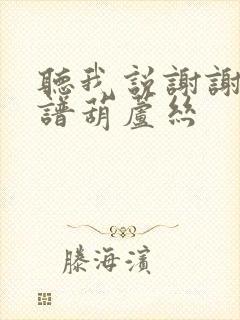 聽我説謝謝
譜葫蘆絲
滕海濱